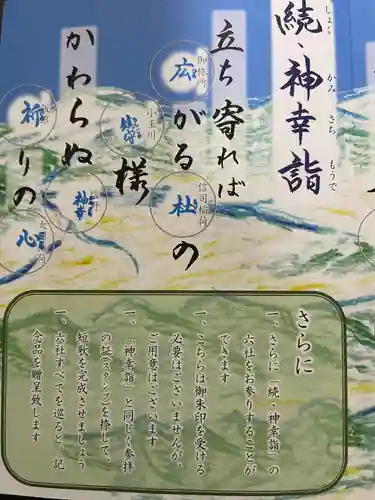 続・神幸詣
しょく かみ さち もうで
立ち寄れば
御旅所
広がる
信司稲荷
杜の
小王川
様
かわらぬ
神幸
祈りの
心
さらに
一、さらに「続・神幸詣」の
六社をお参りすることが
できます
一、こちらは御朱印を受ける
必要はございませんが、
ご用意はございます
一、「神幸詣」と同じく参拝
の証スタンプを捺して、
短歌を完成させましょう
一、六社すべてを巡ると、記
念品を贈呈致します